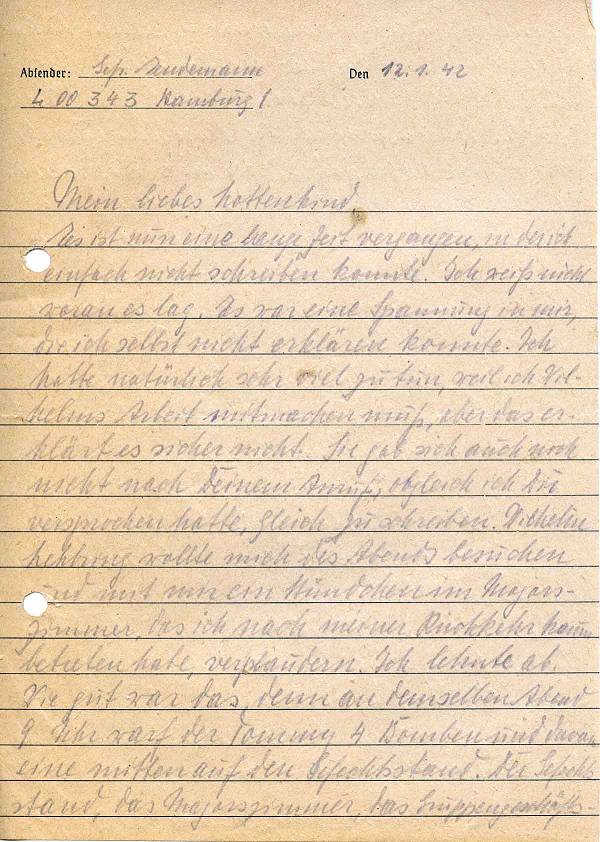 Absender: Gefr. Lindemann Den 12.1.42
L 00 343 Hamburg 1
Mein liebes Lottenkind,
Es ist nun eine lange Zeit vergangen, in der ich
einfach nicht schreiben konnte. Ich weiß nicht
woran es lag. Es war eine Spannung in mir,
die ich selbst nicht erklären konnte. Ich
hatte natürlich sehr viel zu tun, weil ich Wil-
helms Arbeit mitmachen muß, aber das er-
klärt es sicher nicht. Sie gab sich auch noch
nicht nach Deinem Anruf, obgleich ich Dir
versprochen hatte, gleich zu schreiben. Wilhelm
wollte mich des Abends besuchen
und mit mir ein Stündchen im Majors-
zimmer, das ich nach meiner Rückkehr kaum
betreten habe, verplaudern. Ich lehnte ab.
Wie gut war das, denn an demselben Abend
9 Uhr warf der Tommy 4 Bomben und davon
eine mitten auf den Gefechtsstand. Der Gefechts-
stand, das Majorszimmer, das Gruppengeschäfts-